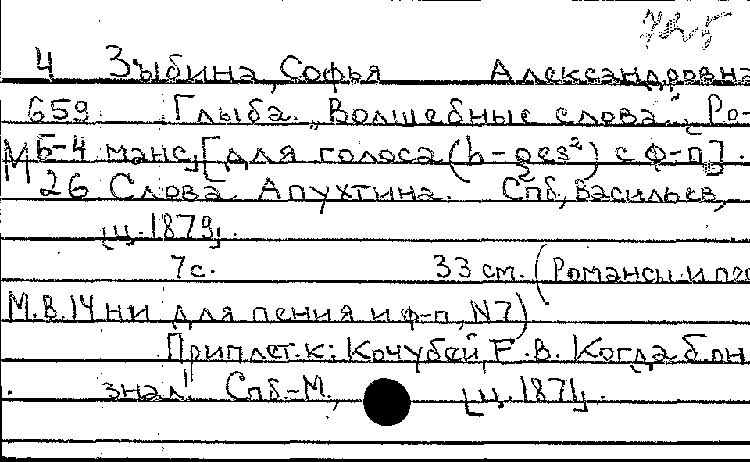 4 Зыбина, Софья Александровна
659 Глыба. „Волшебные слова". Ро-
М Б-4 манс, [для голоса (h-ges²) с ф-п].
26 Слова Апухтина. Спб, Васильев,
[ц. 1879].
7 с. 33 см. (Романсы и пес
М.В.14 ни для пения и ф-п, N7)
Приплет. к: Кочубей, Е.В. Когда б он
знал! Спб-М., [ц. 1871].